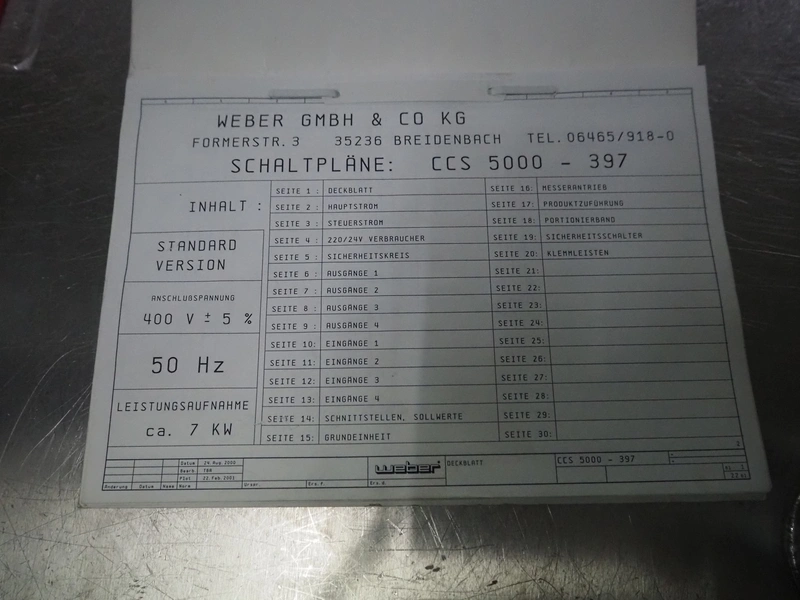 WEBER GMBH & CO KG
FORMERSTR. 3 35236 BREIDENBACH TEL. 06465/918-0
SCHALTPLÄNE: CCS 5000 - 397
INHALT :
STANDARD
VERSION
ANSCHLUßSPANNUNG
400 V ± 5 %
50 Hz
LEISTUNGSAUFNAHME
ca. 7 KW
SEITE 1 : DECKBLATT
SEITE 2 : HAUPTSTROM
SEITE 3 : STEUERSTROM
SEITE 4 : 220/24V VERBRAUCHER
SEITE 5 : SICHERHEITSKREIS
SEITE 6 : AUSGÄNGE 1
SEITE 7 : AUSGÄNGE 2
SEITE 8 : AUSGÄNGE 3
SEITE 9 : AUSGÄNGE 4
SEITE 10: EINGÄNGE 1
SEITE 11: EINGÄNGE 2
SEITE 12: EINGÄNGE 3
SEITE 13: EINGÄNGE 4
SEITE 14: SCHNITTSTELLEN, SOLLWERTE
SEITE 15: GRUNDEINHEIT
SEITE 16: MESSERANTRIEB
SEITE 17: PRODUKTZUFÜHRUNG
SEITE 18: PORTIONIERBAND
SEITE 19: SICHERHEITSSCHALTER
SEITE 20: KLEMMLEISTEN
SEITE 21:
SEITE 22:
SEITE 23:
SEITE 24:
SEITE 25:
SEITE 26:
SEITE 27:
SEITE 28:
SEITE 29:
SEITE 30:
Datum 24 Aug 2000
Bearb TBR
Plot 22 Feb 2001
Änderung Datum Name Norm Urspr.
weber
DECKBLATT
CCS 5000 - 397